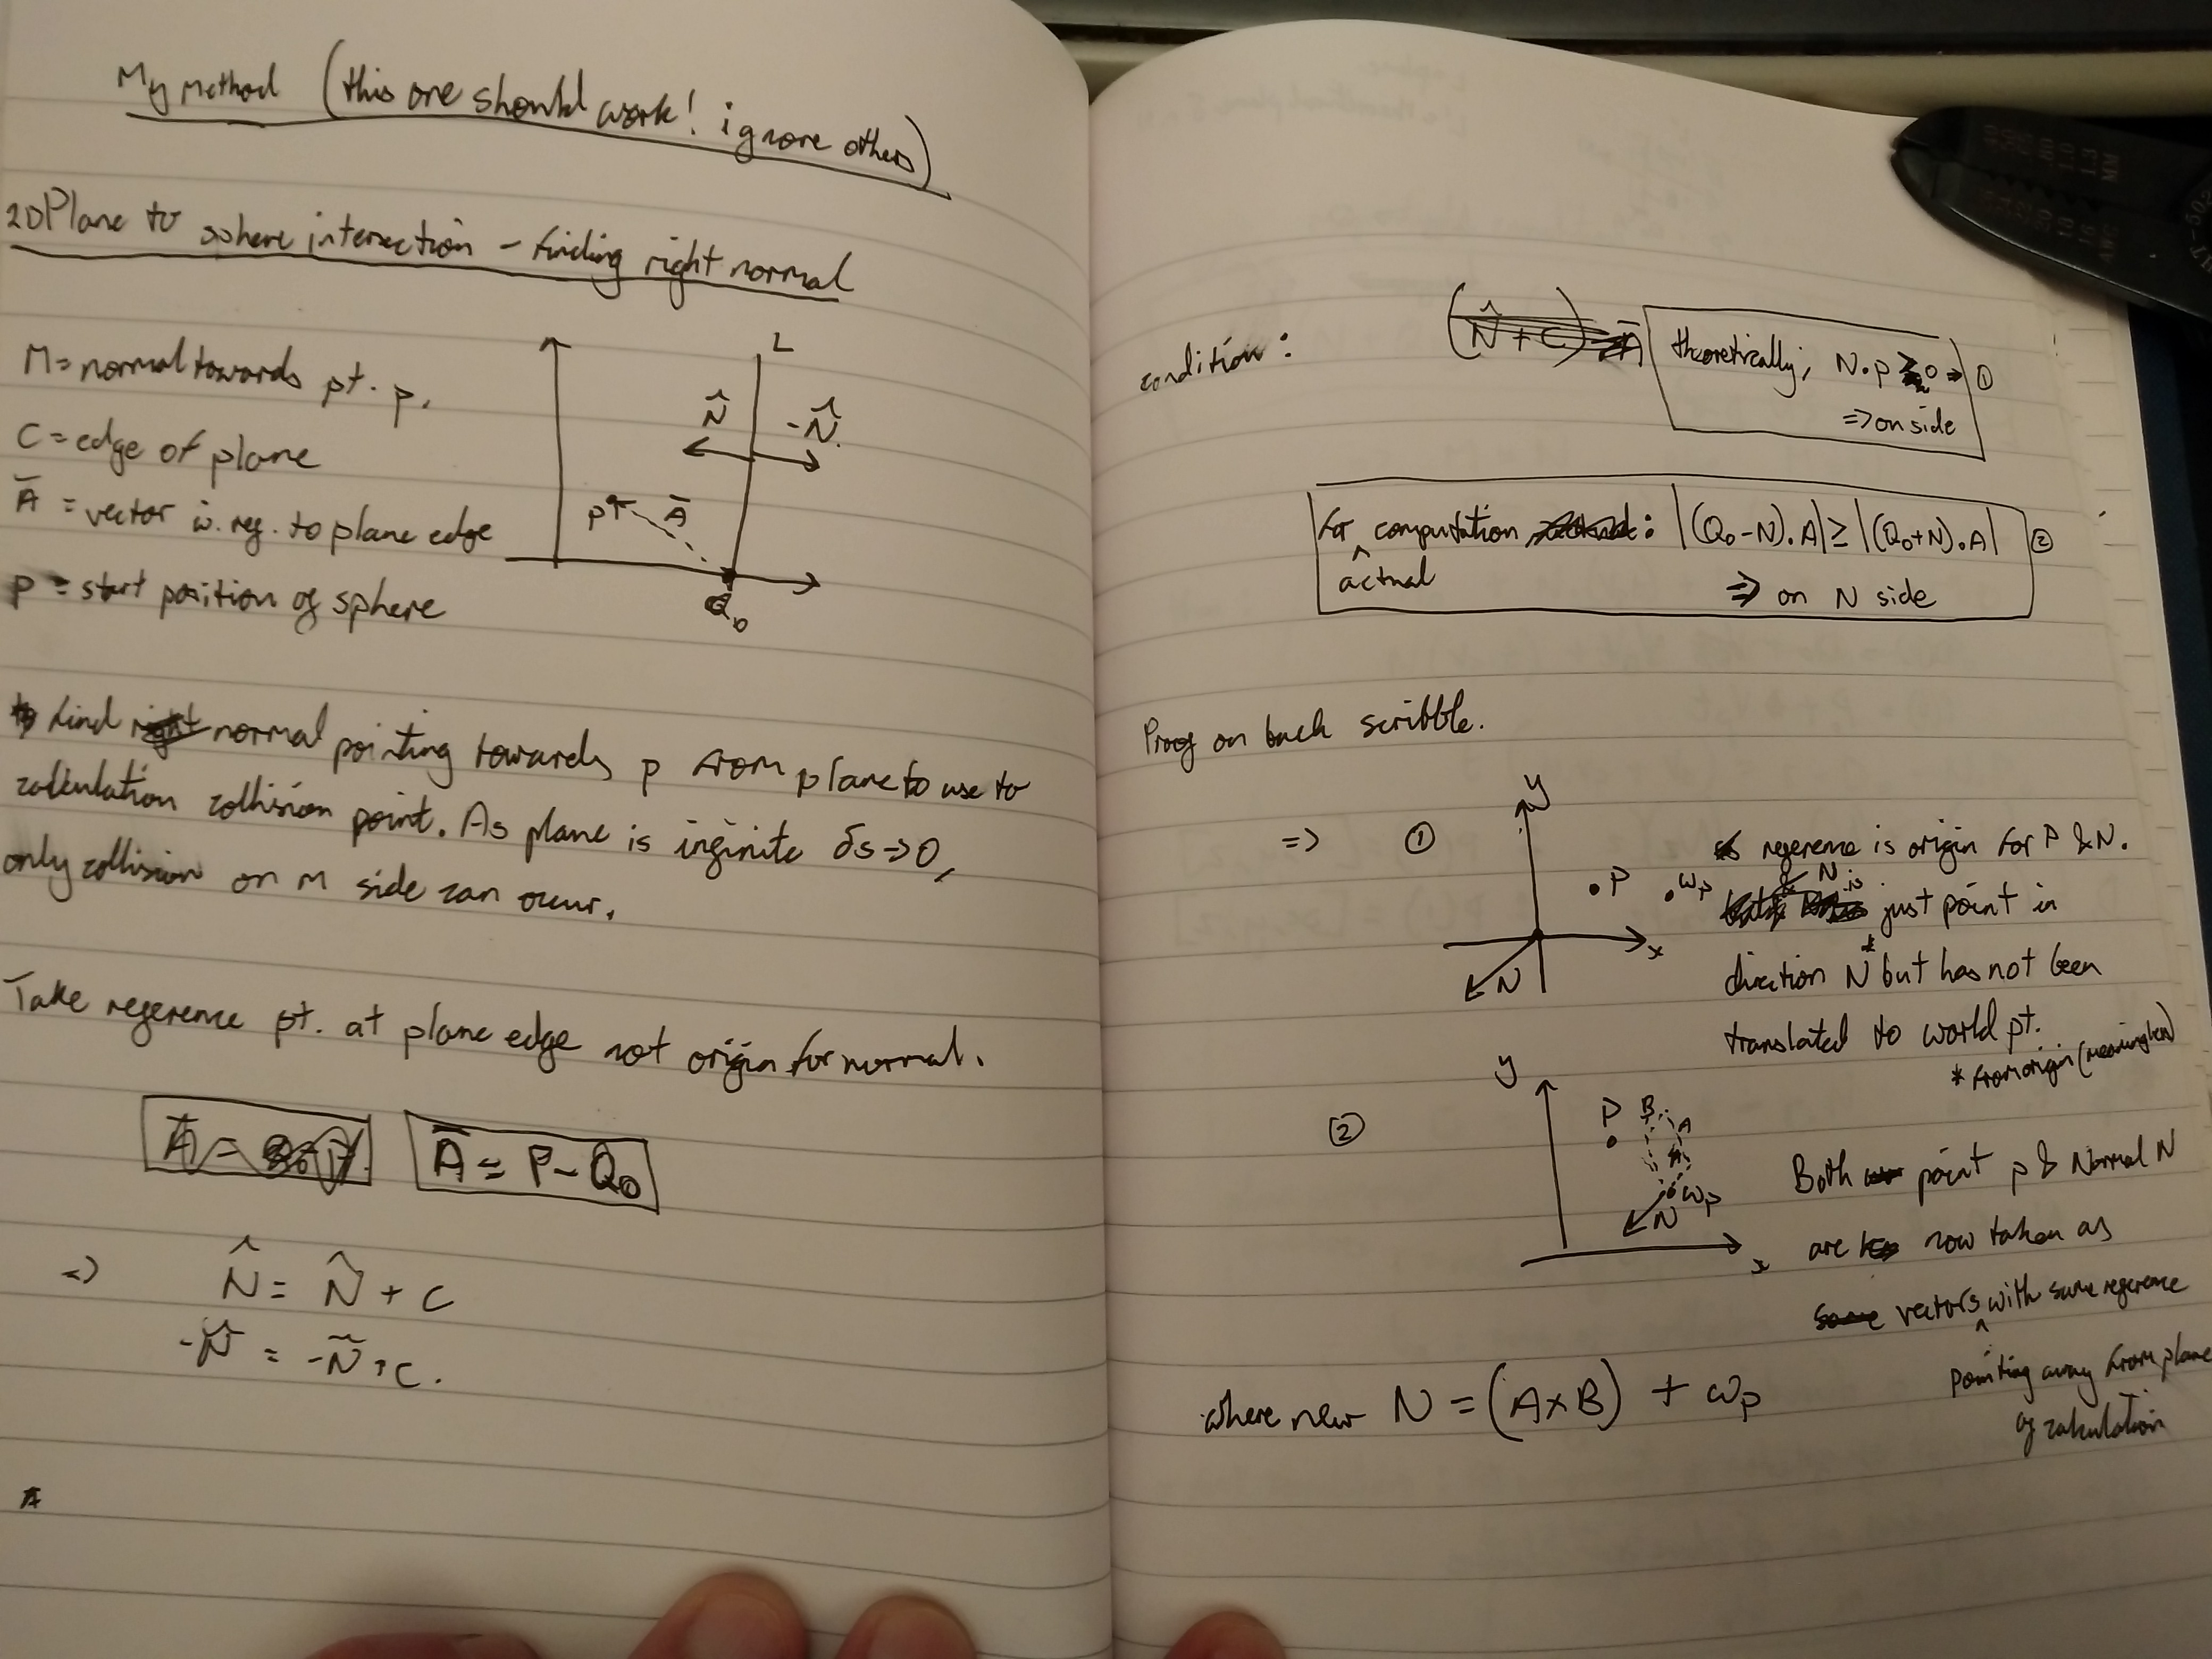 My method (this one should work! ignore others)
2D Plane to sphere intersection - finding right normal
M = normal towards pt. p.
C = edge of plane
A = vector w. reg. to plane edge
p = start position of sphere
L
N̂
-N̂.
P
Ā
Q₀
find right normal pointing towards p from plane to use to
calculation collision point. As plane is infinite δs->0,
only collision on m side can occur.
Take reference pt. at plane edge not origin for normal.
Ā = P - Q₀
=> N̂ = N̂ + C
-N̂ = -N̂ + C.
condition: (N̂ + C) Ā
theoretically, N.p ≥ 0 => ①
=> on side
For computation : |(Q₀-N).A| ≥ |(Q₀+N).A| ②
^ actual
=> on N side
Proof on back scribble.
=> ①
y
x
.P
.wp
N
reference is origin for P & N.
& N is
just point in
direction N* but has not been
translated to world pt.
* from origin (meaningless)
②
y
x
P
B
A
wp
N
Both point p & Normal N
are now taken as
some vectors with same reference
^ pointing away from plane
of calculation
where new N = (A×B) + wp